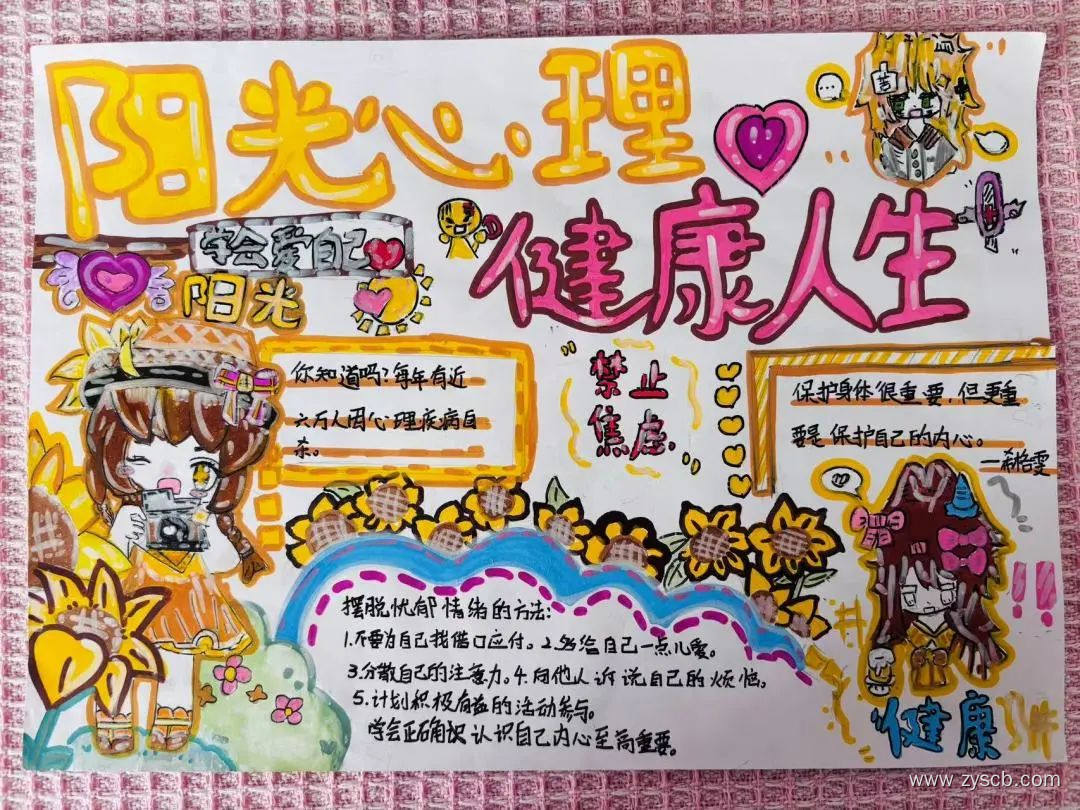 阳光心理
苦
健康人生
学会爱自己
阳光
你知道吗?每年有近
六万人因心理疾病自
杀。
禁止
焦虑
保护身体很重要,但更重
要是保护自己的内心。
摆脱忧郁情绪的方法:
1.不要为自己找借口应付。2.多给自己一点儿爱。
3.分散自己的注意力。4.向他人诉说自己的烦恼。
5.计划积极有益的活动参与。
学会正确认识自己内心至高重要。
健康
www.zyscb.com